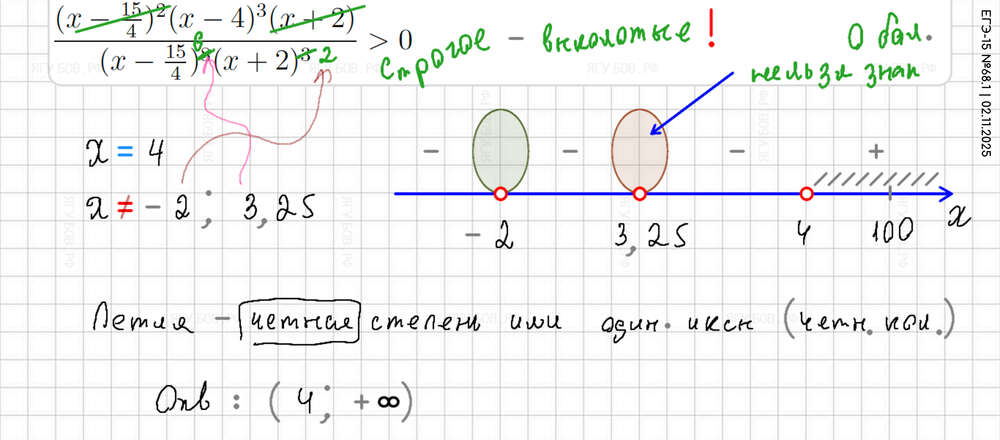 (x − 15/4)²(x − 4)³(x + 2)
(x − 15/4) (x + 2)³ 2 > 0
строгое – выколотые !
0 бал.
нельзя знак
ЕГЭ-15 №68.1 | 02.11.2025
x = 4
x ≠ – 2 ; 3,25
– – – +
– 2 3,25 4 100 x
Петля – четная степень или один. иксы (четн. кол.)
Отв : ( 4; +∞)